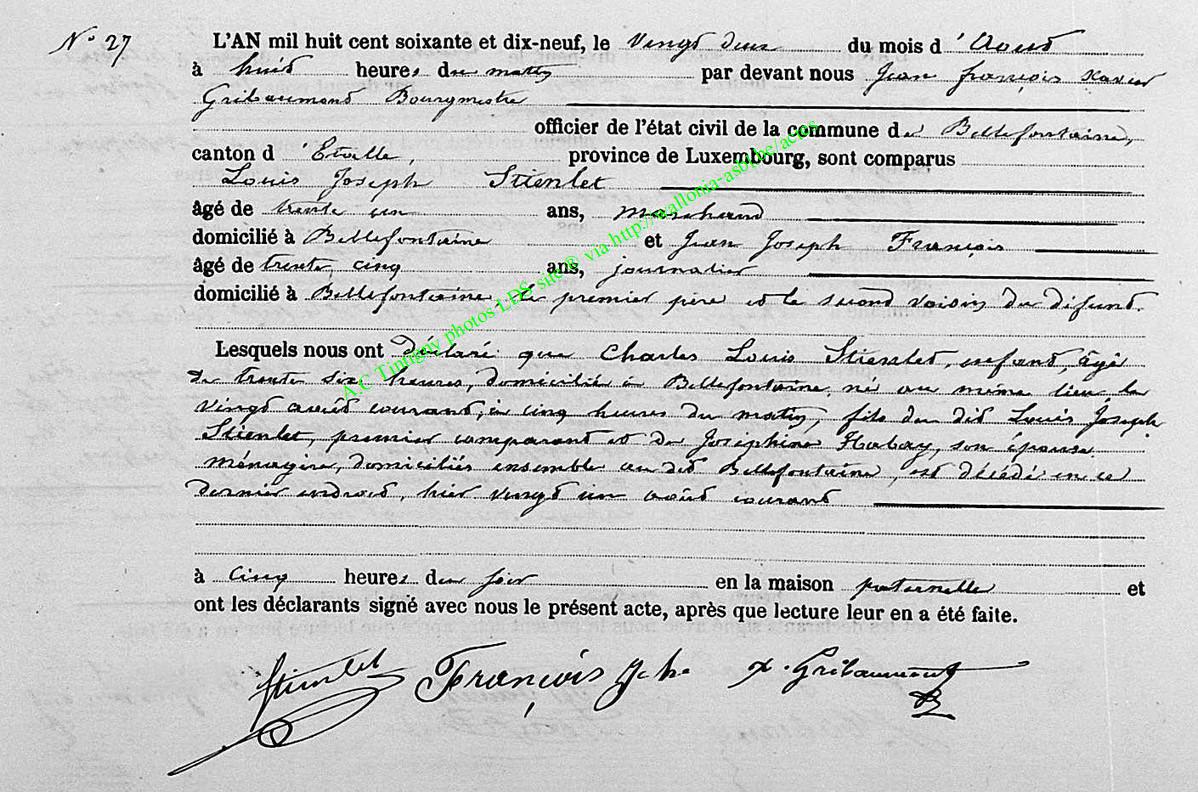 N° 27
L'AN mil huit cent soixante et dix-neuf, le vingt deux du mois d'Août
à huit heures du matin par devant nous Jean François Xavier
Gribaumont Bourgmestre
officier de l'état civil de la commune de Bellefontaine,
canton d'Etalle, province de Luxembourg, sont comparus
Louis Joseph Stienlet
âgé de trente un ans, marchand
domicilié à Bellefontaine et Jean Joseph François
âgé de trente cinq ans, journalier
domicilié à Bellefontaine, le premier père et le second voisin du défunt.
Lesquels nous ont déclaré que Charles Louis Stienlet, enfant, âgé
de trente six heures, domicilié à Bellefontaine, né au même lieu le
vingt août courant, à cinq heures du matin, fils du dit Louis Joseph
Stienlet, premier comparant et de Joséphine Habay, son épouse
ménagère, domiciliés ensemble au dit Bellefontaine, est décédé en ce
dernier endroit, hier vingt un août courant
à cinq heures du soir en la maison paternelle et
ont les déclarants signé avec nous le présent acte, après que lecture leur en a été faite.
Stienlet François Jph. x. Gribaumont
A.C Tintigny photos LDS site® via http://wallonia-asbl.be/actes